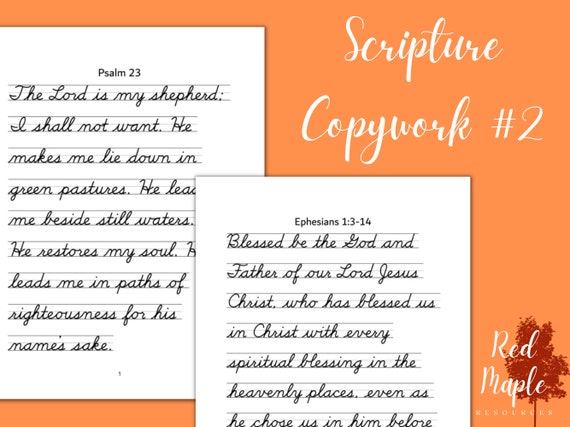 Scripture
Copywork #2
Psalm 23
The Lord is my shepherd;
I shall not want. He
makes me lie down in
green pastures. He lead
me beside still waters.
He restores my soul. H
leads me in paths of
righteousness for his
name's sake.
1
Ephesians 1:3-14
Blessed be the God and
Father of our Lord Jesus
Christ, who has blessed us
in Christ with every
spiritual blessing in the
heavenly places, even as
he chose us in him before
Red
Maple
RESOURCES